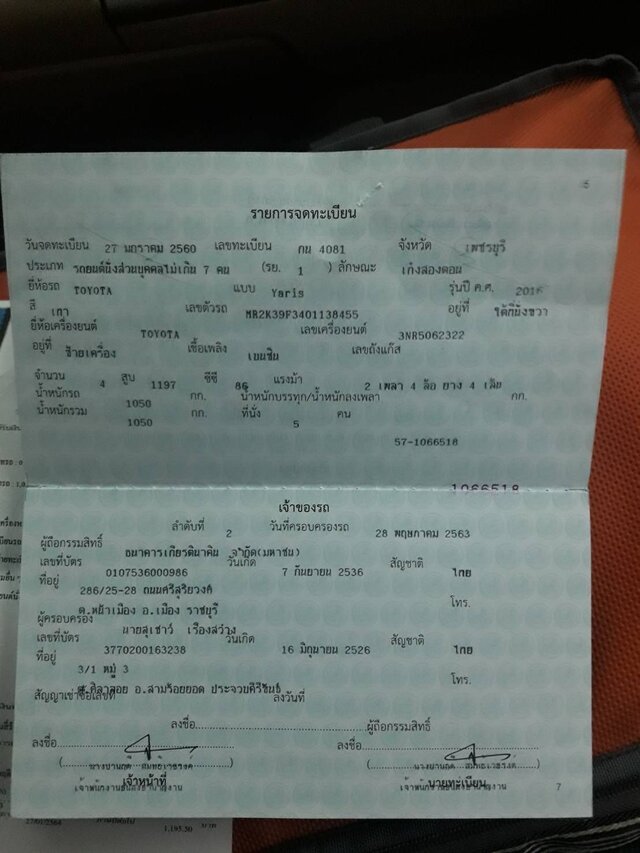 5
รายการจดทะเบียน
วันจดทะเบียน 27 มกราคม 2560 เลขทะเบียน กน 4081 จังหวัด เพชรบุรี
ประเภท รถยนต์นั่งส่วนบุคคลไม่เกิน 7 คน (รย. 1 ) ลักษณะ เก๋งสองตอน
ยี่ห้อรถ TOYOTA แบบ Yaris รุ่นปี ค.ศ. 2016
สี เทา เลขตัวรถ MR2K39F3401138455 อยู่ที่ ใต้ที่นั่งขวา
ยี่ห้อเครื่องยนต์ TOYOTA เลขเครื่องยนต์ 3NR5062322
อยู่ที่ ซ้ายเครื่อง เชื้อเพลิง เบนซิน เลขถังแก๊ส
จำนวน 4 สูบ 1197 ซีซี 86 แรงม้า 2 เพลา 4 ล้อ ยาง 4 เส้น
น้ำหนักรถ 1050 กก. น้ำหนักบรรทุก/น้ำหนักลงเพลา กก.
น้ำหนักรวม 1050 กก. ที่นั่ง 5 คน
57-1066518
1066518
เจ้าของรถ
ลำดับที่ 2 วันที่ครอบครองรถ 28 พฤษภาคม 2563
ผู้ถือกรรมสิทธิ์ ธนาคารเกียรตินาคิน จำกัด(มหาชน)
เลขที่บัตร 0107536000986 วันเกิด 7 กันยายน 2536 สัญชาติ ไทย
ที่อยู่ 286/25-28 ถนนศรีสุริยวงศ์ โทร.
ต.หน้าเมือง อ.เมือง ราชบุรี
ผู้ครอบครอง นายสุเชาว์ เรืองสว่าง
เลขที่บัตร 3770200163238 วันเกิด 16 มิถุนายน 2526 สัญชาติ ไทย
ที่อยู่ 3/1 หมู่ 3 โทร.
ต.ศิลาลอย อ.สามร้อยยอด ประจวบคีรีขันธ์
สัญญาเช่าซื้อเลขที่ ลงวันที่
ลงชื่อ ผู้ถือกรรมสิทธิ์
ลงชื่อ ลงชื่อ
เจ้าหน้าที่ นายทะเบียน
7
27/01/2564 1,195.50 บาท